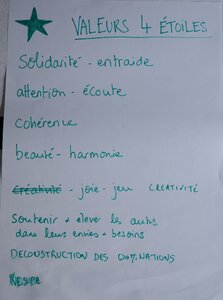 VALEURS 4 ÉTOILES
Solidarité - entraide
attention - écoute
cohérence
beauté - harmonie
Créativité - joie - jeu CREATIVITÉ
Soutenir + élever les autres
dans leurs envies + besoins
DECONSTRUCTION DES DOMINATIONS